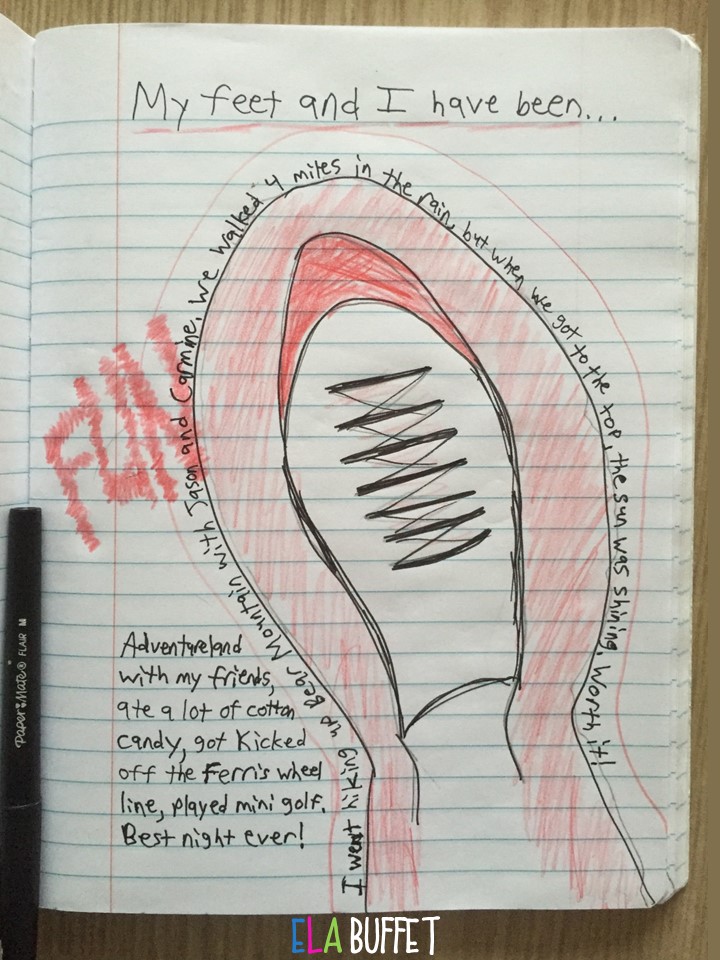 My feet and I have been...
I went hiking up Bear Mountain with Jason and Carmine. We walked 4 miles in the rain, but when we got to the top, the sun was shining. Worth it!
FUN
Adventureland
with my friends,
ate a lot of cotton
candy, got kicked
off the Ferris wheel
line, played mini golf.
Best night ever!
Paper Mate® FLAIR M
ELA BUFFET